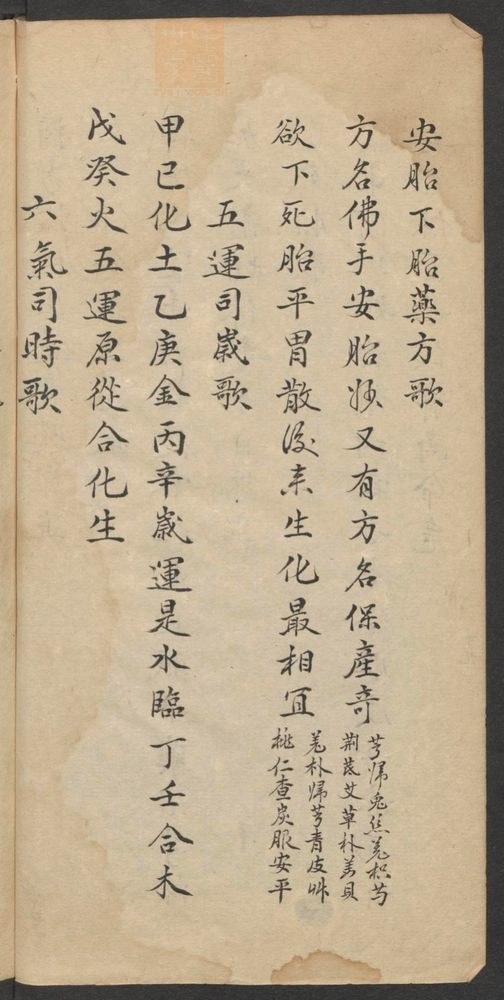 安胎下胎藥方歌
方名佛手安胎妙又有方名保産奇
芎歸兔絲羌枳芍
荆芪艾草朴姜貝
欲下死胎平胃散後來生化最相宜
羌朴歸芎青皮艸
桃仁查炭服安平
五運司歲歌
甲已化土乙庚金丙辛歲運是水臨丁壬合木
戊癸火五運原從合化生
六氣司時歌